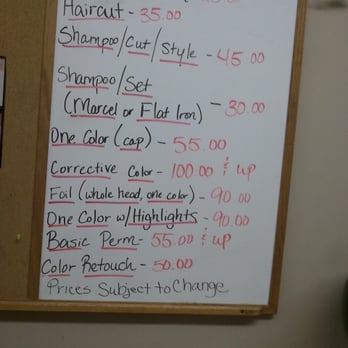 Haircut - 35.00
Shampoo/Cut/Style - 45.00
Shampoo/Set
(Marcel or Flat Iron) - 30.00
One Color (cap) - 55.00
Corrective Color - 100.00 & up
Foil (whole head, one color) - 90.00
One Color w/Highlights - 90.00
Basic Perm - 55.00 & up
Color Retouch - 50.00
Prices Subject to Change